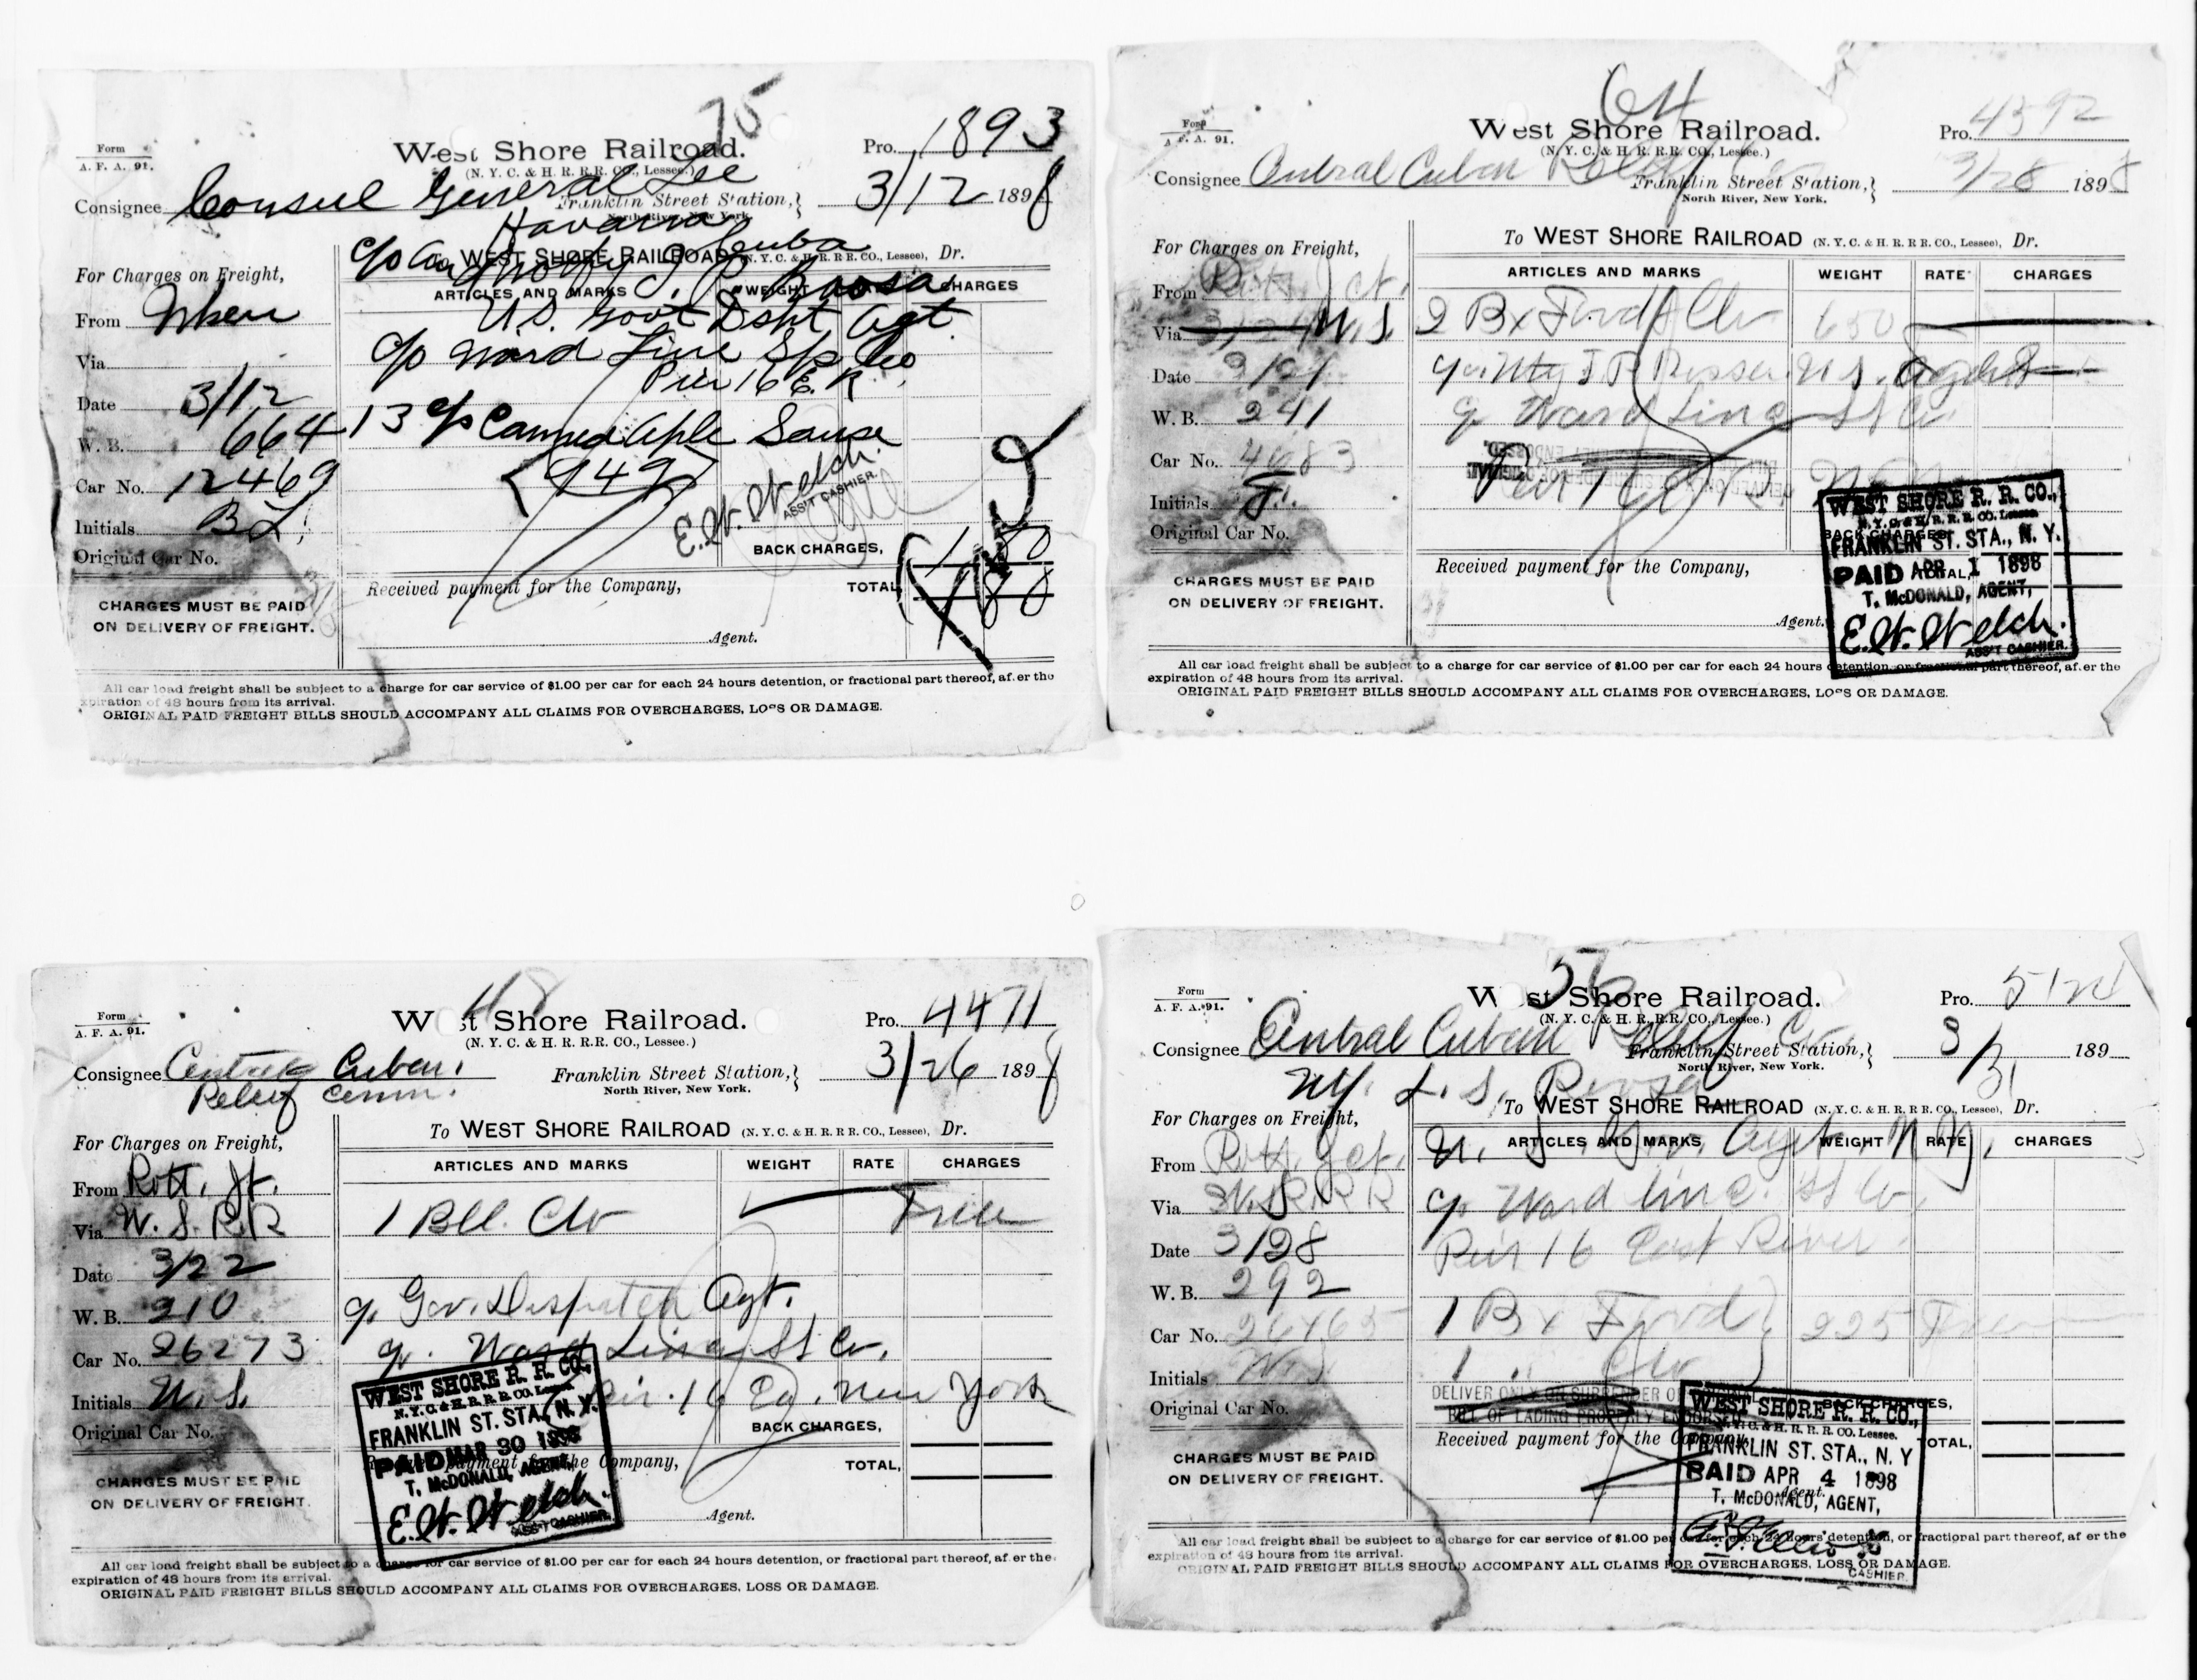 75
Form
A. F. A. 91.
West Shore Railroad.
(N. Y. C. & H. R. R.R. CO., Lessee.)
Pro. 1893
Consignee Consul General Lee
Franklin Street Station,
North River, New York.
3/12 1898
Havana
Cuba
To WEST SHORE RAILROAD (N. Y. C. & H. R. R R. CO., Lessee), Dr.
c/o
For Charges on Freight,
ARTICLES AND MARKS WEIGHT CHARGES
From
U.S. Govt Dsht Agt
Via
c/o Ward Line Sp Co
Pier 16 E. R.
Date 3/12
W. B. 664
13 c/s Canned Aple Sause
Car No. 12469
<949>
Initials B L
E. W. Welch.
ASS'T CASHIER.
BACK CHARGES, 1 80
Original Car No.
Received payment for the Company,
TOTAL, 1 80
CHARGES MUST BE PAID
ON DELIVERY OF FREIGHT.
Agent.
All car load freight shall be subject to a charge for car service of $1.00 per car for each 24 hours detention, or fractional part thereof, af.er the
expiration of 48 hours from its arrival.
ORIGINAL PAID FREIGHT BILLS SHOULD ACCOMPANY ALL CLAIMS FOR OVERCHARGES, LOSS OR DAMAGE.
64
Form
A. F. A. 91.
West Shore Railroad.
(N. Y. C. & H. R. R.R. CO., Lessee.)
Pro. 4392
Consignee Central Cuban Relief
Franklin Street Station,
North River, New York.
3/28 1898
To WEST SHORE RAILROAD (N. Y. C. & H. R. R R. CO., Lessee), Dr.
For Charges on Freight,
ARTICLES AND MARKS WEIGHT RATE CHARGES
From Rott. Jct.
Via W. S.
2 Bx Food & Clo 650
Date 3/24
U. S.
W. B. 241
c/o Ward Line St Co
Car No. 4683
Pier 16 E R. N. Y.
Initials
Original Car No.
WEST SHORE R. R. CO.,
N. Y. C. & H. R. R. R. CO. Lessee
BACK CHARGES,
FRANKLIN ST. STA., N. Y.
PAID APR 1 1898
TOTAL,
T. McDONALD, AGENT,
E. W. Welch.
ASS'T CASHIER.
Received payment for the Company,
CHARGES MUST BE PAID
ON DELIVERY OF FREIGHT.
Agent.
All car load freight shall be subject to a charge for car service of $1.00 per car for each 24 hours detention, or fractional part thereof, af.er the
expiration of 48 hours from its arrival.
ORIGINAL PAID FREIGHT BILLS SHOULD ACCOMPANY ALL CLAIMS FOR OVERCHARGES, LOSS OR DAMAGE.
48
Form
A. F. A. 91.
West Shore Railroad.
(N. Y. C. & H. R. R.R. CO., Lessee.)
Pro. 4471
Consignee Central Cuban
Relief Comm.
Franklin Street Station,
North River, New York.
3/26 1898
To WEST SHORE RAILROAD (N. Y. C. & H. R. R R. CO., Lessee), Dr.
For Charges on Freight,
ARTICLES AND MARKS WEIGHT RATE CHARGES
From Rott. Jt.
Via W. S. R. R
1 Bll. Clo Free
Date 3/22
W. B. 210
c/o Gov. Dispatch Agt.
Car No. 26273
c/o Ward Line St Co.
Initials W. S.
Pier 16 New York
Original Car No.
BACK CHARGES,
WEST SHORE R. R. CO.,
N. Y. C. & H. R. R. R. CO. Lessee
FRANKLIN ST. STA., N. Y.
PAID MAR 30 1898
T. McDONALD, AGENT,
E. W. Welch.
ASS'T CASHIER.
Received payment for the Company,
TOTAL,
CHARGES MUST BE PAID
ON DELIVERY OF FREIGHT.
Agent.
All car load freight shall be subject to a charge for car service of $1.00 per car for each 24 hours detention, or fractional part thereof, af.er the
expiration of 48 hours from its arrival.
ORIGINAL PAID FREIGHT BILLS SHOULD ACCOMPANY ALL CLAIMS FOR OVERCHARGES, LOSS OR DAMAGE.
Form
A. F. A. 91.
West Shore Railroad.
(N. Y. C. & H. R. R.R. CO., Lessee.)
Pro. 5124
Consignee Central Cuban Relief
Franklin Street Station,
North River, New York.
3/31 189
To WEST SHORE RAILROAD (N. Y. C. & H. R. R R. CO., Lessee), Dr.
For Charges on Freight,
ARTICLES AND MARKS WEIGHT RATE CHARGES
From Rott. Jct.
U. S. Agt. N. Y.
Via W.S.R.R
c/o Ward Line St Co
Date 3/28
Pier 16 East River
W. B. 292
1 Bx Food 225 Free
Car No. 26465
1 " Clo
Initials W S
DELIVER ONLY ON SURRENDER OF
BILL OF LADING PROPERLY ENDORSED
Original Car No.
BACK CHARGES,
Received payment for the Company,
TOTAL,
WEST SHORE R. R. CO.,
N. Y. C. & H. R. R. R. CO. Lessee.
FRANKLIN ST. STA., N. Y
PAID APR 4 1898
T. McDONALD, AGENT,
CASHIER.
CHARGES MUST BE PAID
ON DELIVERY OF FREIGHT.
Agent.
All car load freight shall be subject to a charge for car service of $1.00 per car for each 24 hours detention, or fractional part thereof, af er the
expiration of 48 hours from its arrival.
ORIGINAL PAID FREIGHT BILLS SHOULD ACCOMPANY ALL CLAIMS FOR OVERCHARGES, LOSS OR DAMAGE.